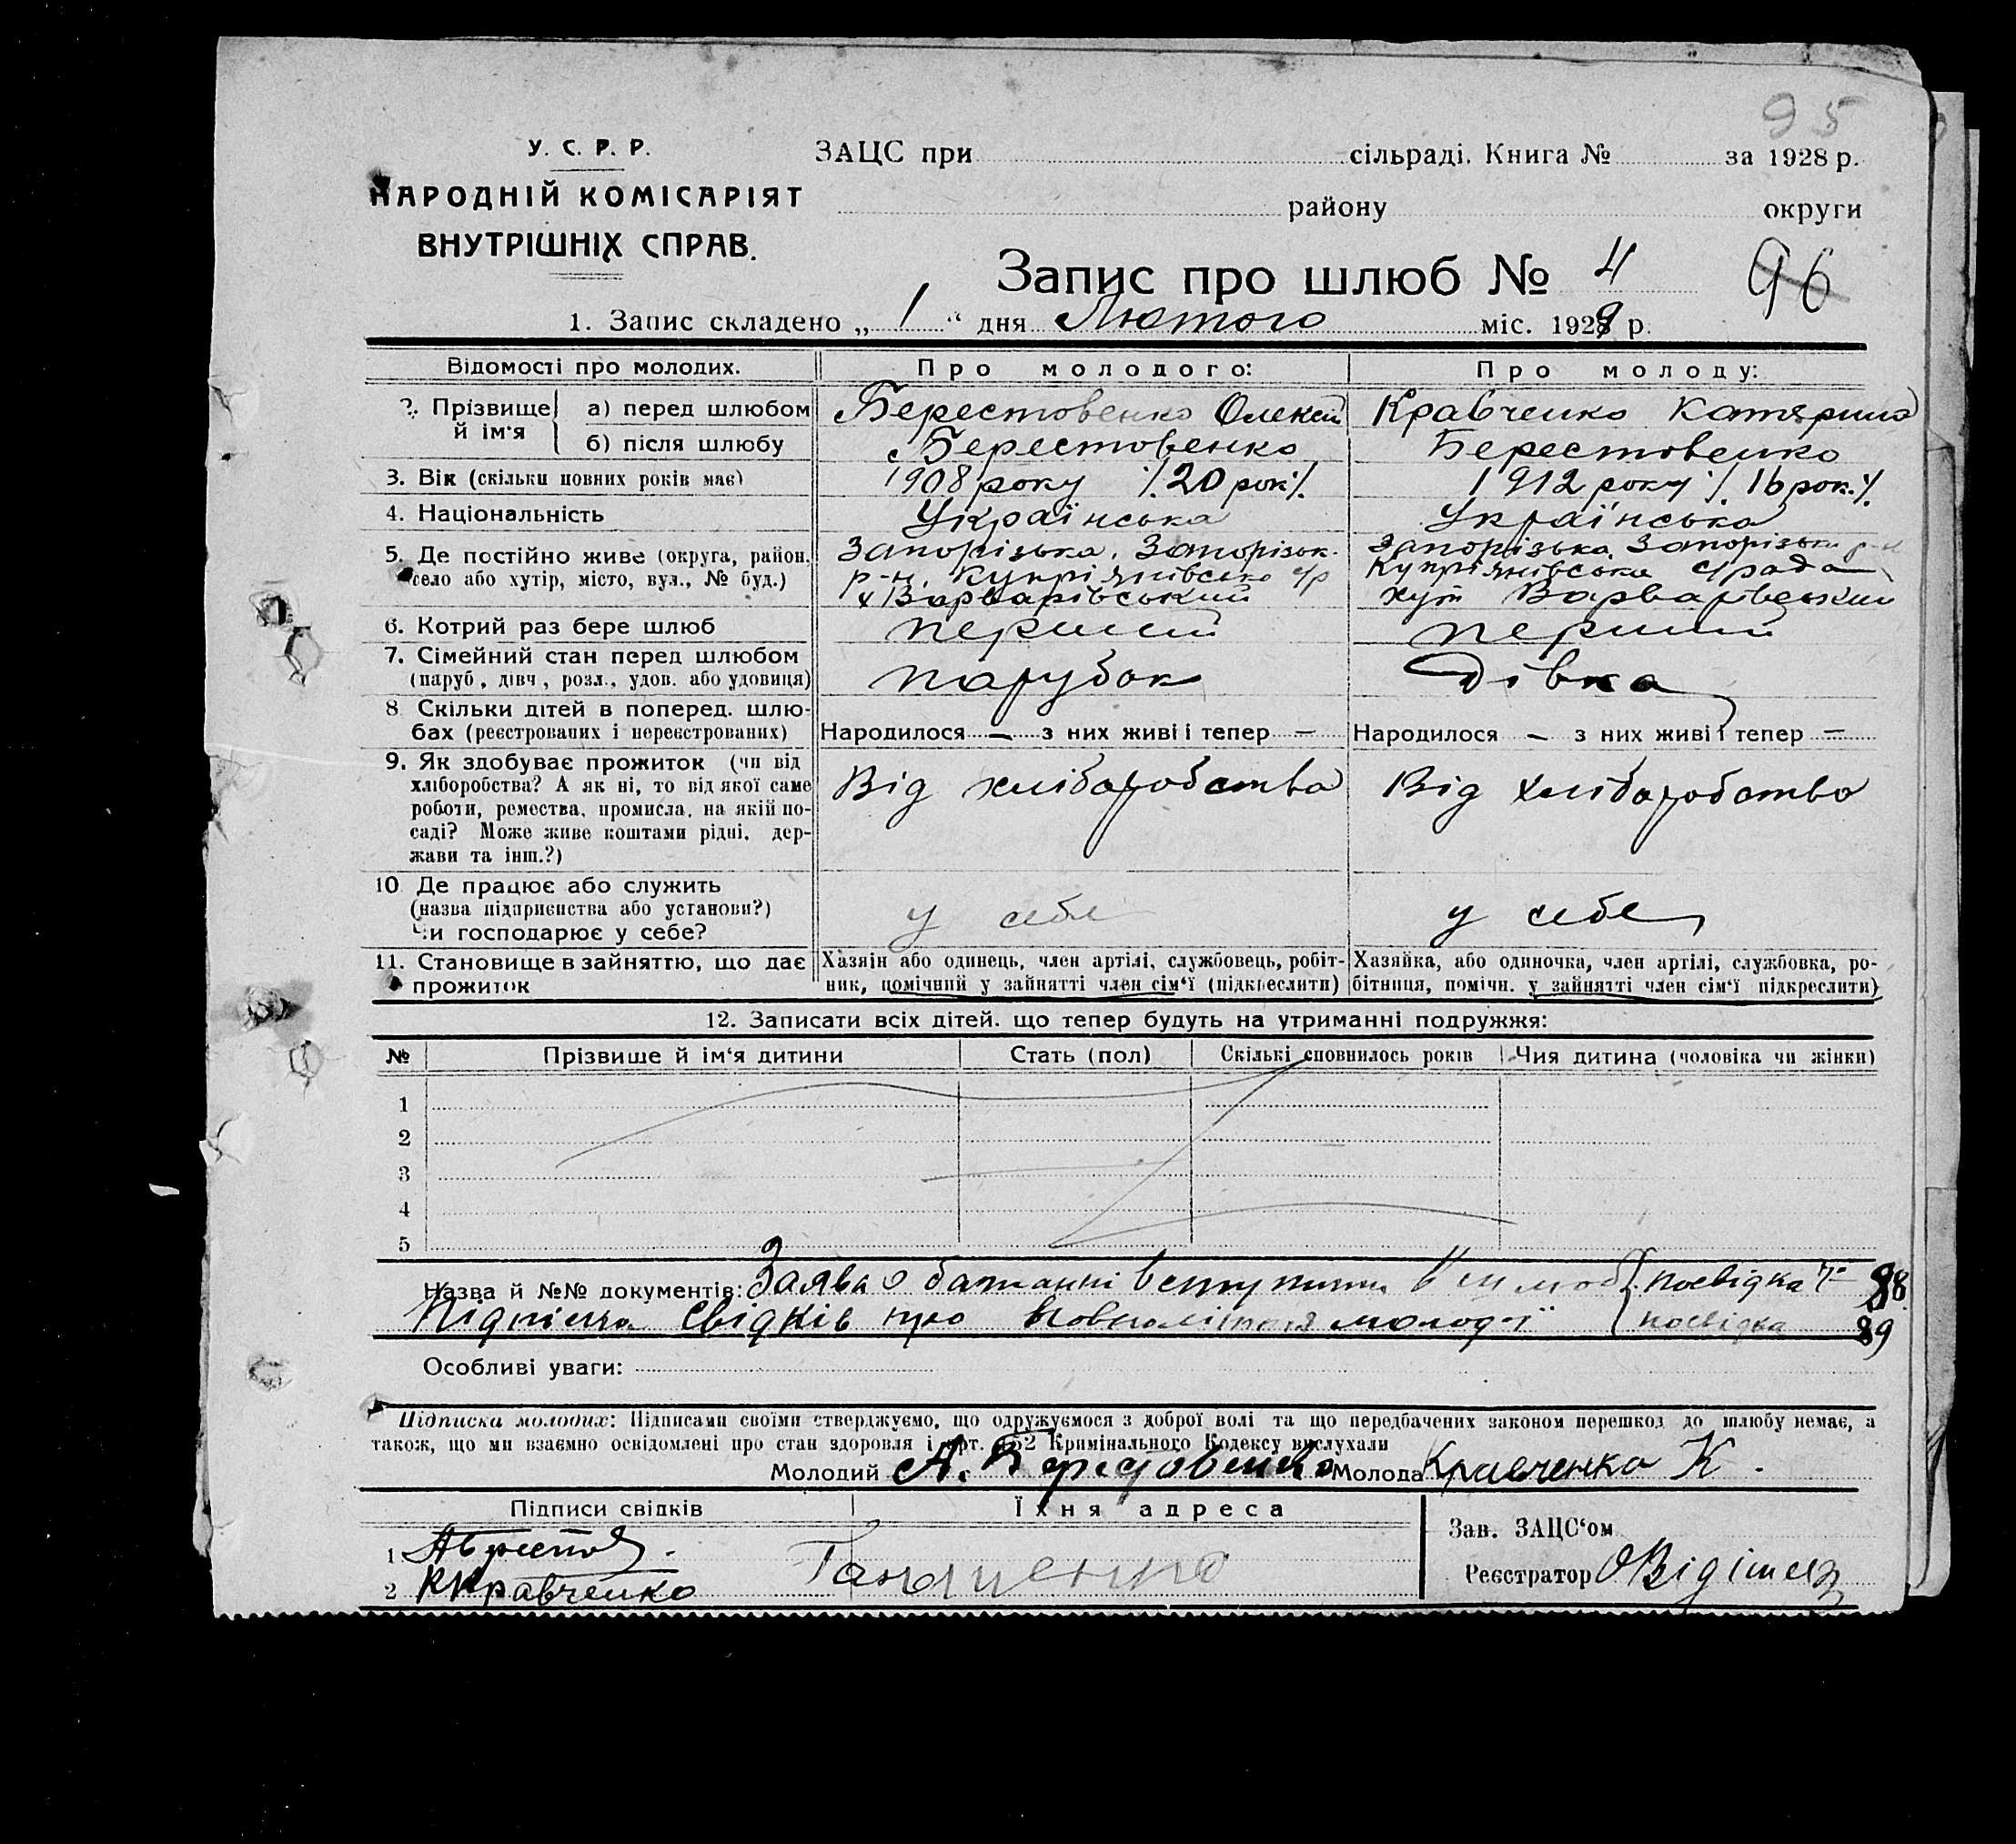 95
У. С. Р. Р.
НАРОДНІЙ КОМІСАРІЯТ
ВНУТРІШНІХ СПРАВ.
ЗАЦС при сільраді. Книга № за 1928 р.
району округи
Запис про шлюб № 4
96
1. Запис складено „ 1 “ дня Лютого міс. 1929 р.
Відомості про молодих. Про молодого: Про молоду:
2. Прізвище й ім‘я а) перед шлюбом Берестовенко Олексій Кравченко Катерина
б) після шлюбу Берестовенко Берестовенко
3. Вік (скільки повних років має) 1908 року /20 рок/ 1912 року /16 рок./
4. Національність Українська Українська
5. Де постійно живе (округа, район, Запорізька. Запорізьк. Запорізька Запорізьк р-н
село або хутір, місто, вул., № буд.) р-н. Купріянівсько с/р Купріянівська с/рада
х Варварівський хут Варварівський
6. Котрий раз бере шлюб перший перший
7. Сімейний стан перед шлюбом парубок Дівка
(паруб., дівч., розл., удов. або удовиця)
8. Скільки дітей в поперед. шлю-
бах (реєстрованих і нереєстрованих) Народилося — з них живі і тепер — Народилося — з них живі і тепер —
9. Як здобуває прожиток (чи від Від хліборобства Від хліборобства
хліборобства? А як ні, то від якої саме
роботи, ремества, промисла, на якій по-
саді? Може живе коштами рідні, дер-
жави та інш.?)
10. Де працює або служить
(назва підприємства або установи?) у себе у себе
Чи господарює у себе?
11. Становище в зайняттю, що дає Хазяїн або одинець, член артілі, службовець, робіт- Хазяйка, або одиночка, член артілі, службовка, ро-
прожиток ник, помічний у зайнятті член сім‘ї (підкреслити) бітниця, помічн. у зайнятті член сім‘ї підкреслити)
12. Записати всіх дітей, що тепер будуть на утриманні подружжя:
№ Прізвище й ім‘я дитини Стать (пол) Скількі сповнилось років Чия дитина (чоловіка чи жінки)
1
2
3
4
5
Назва й №№ документів: Заява о бажанні вступити в шлюб посвідка № 88
Підписка свідків про повноліття молод-ї посвідка 89
Особливі уваги:
Підписка молодих: Підписами своїми стверджуємо, що одружуємося з доброї волі та що передбачених законом перешкод до шлюбу немає, а
також, що ми взаємно освідомлені про стан здоровля і арт. 152 Кримінального Кодексу вислухали
Молодий А. Берестовенко Молода Кравченка К.
Підписи свідків Їхня адреса Зав. ЗАЦС‘ом
1
2 Кравченко
Реєстратор